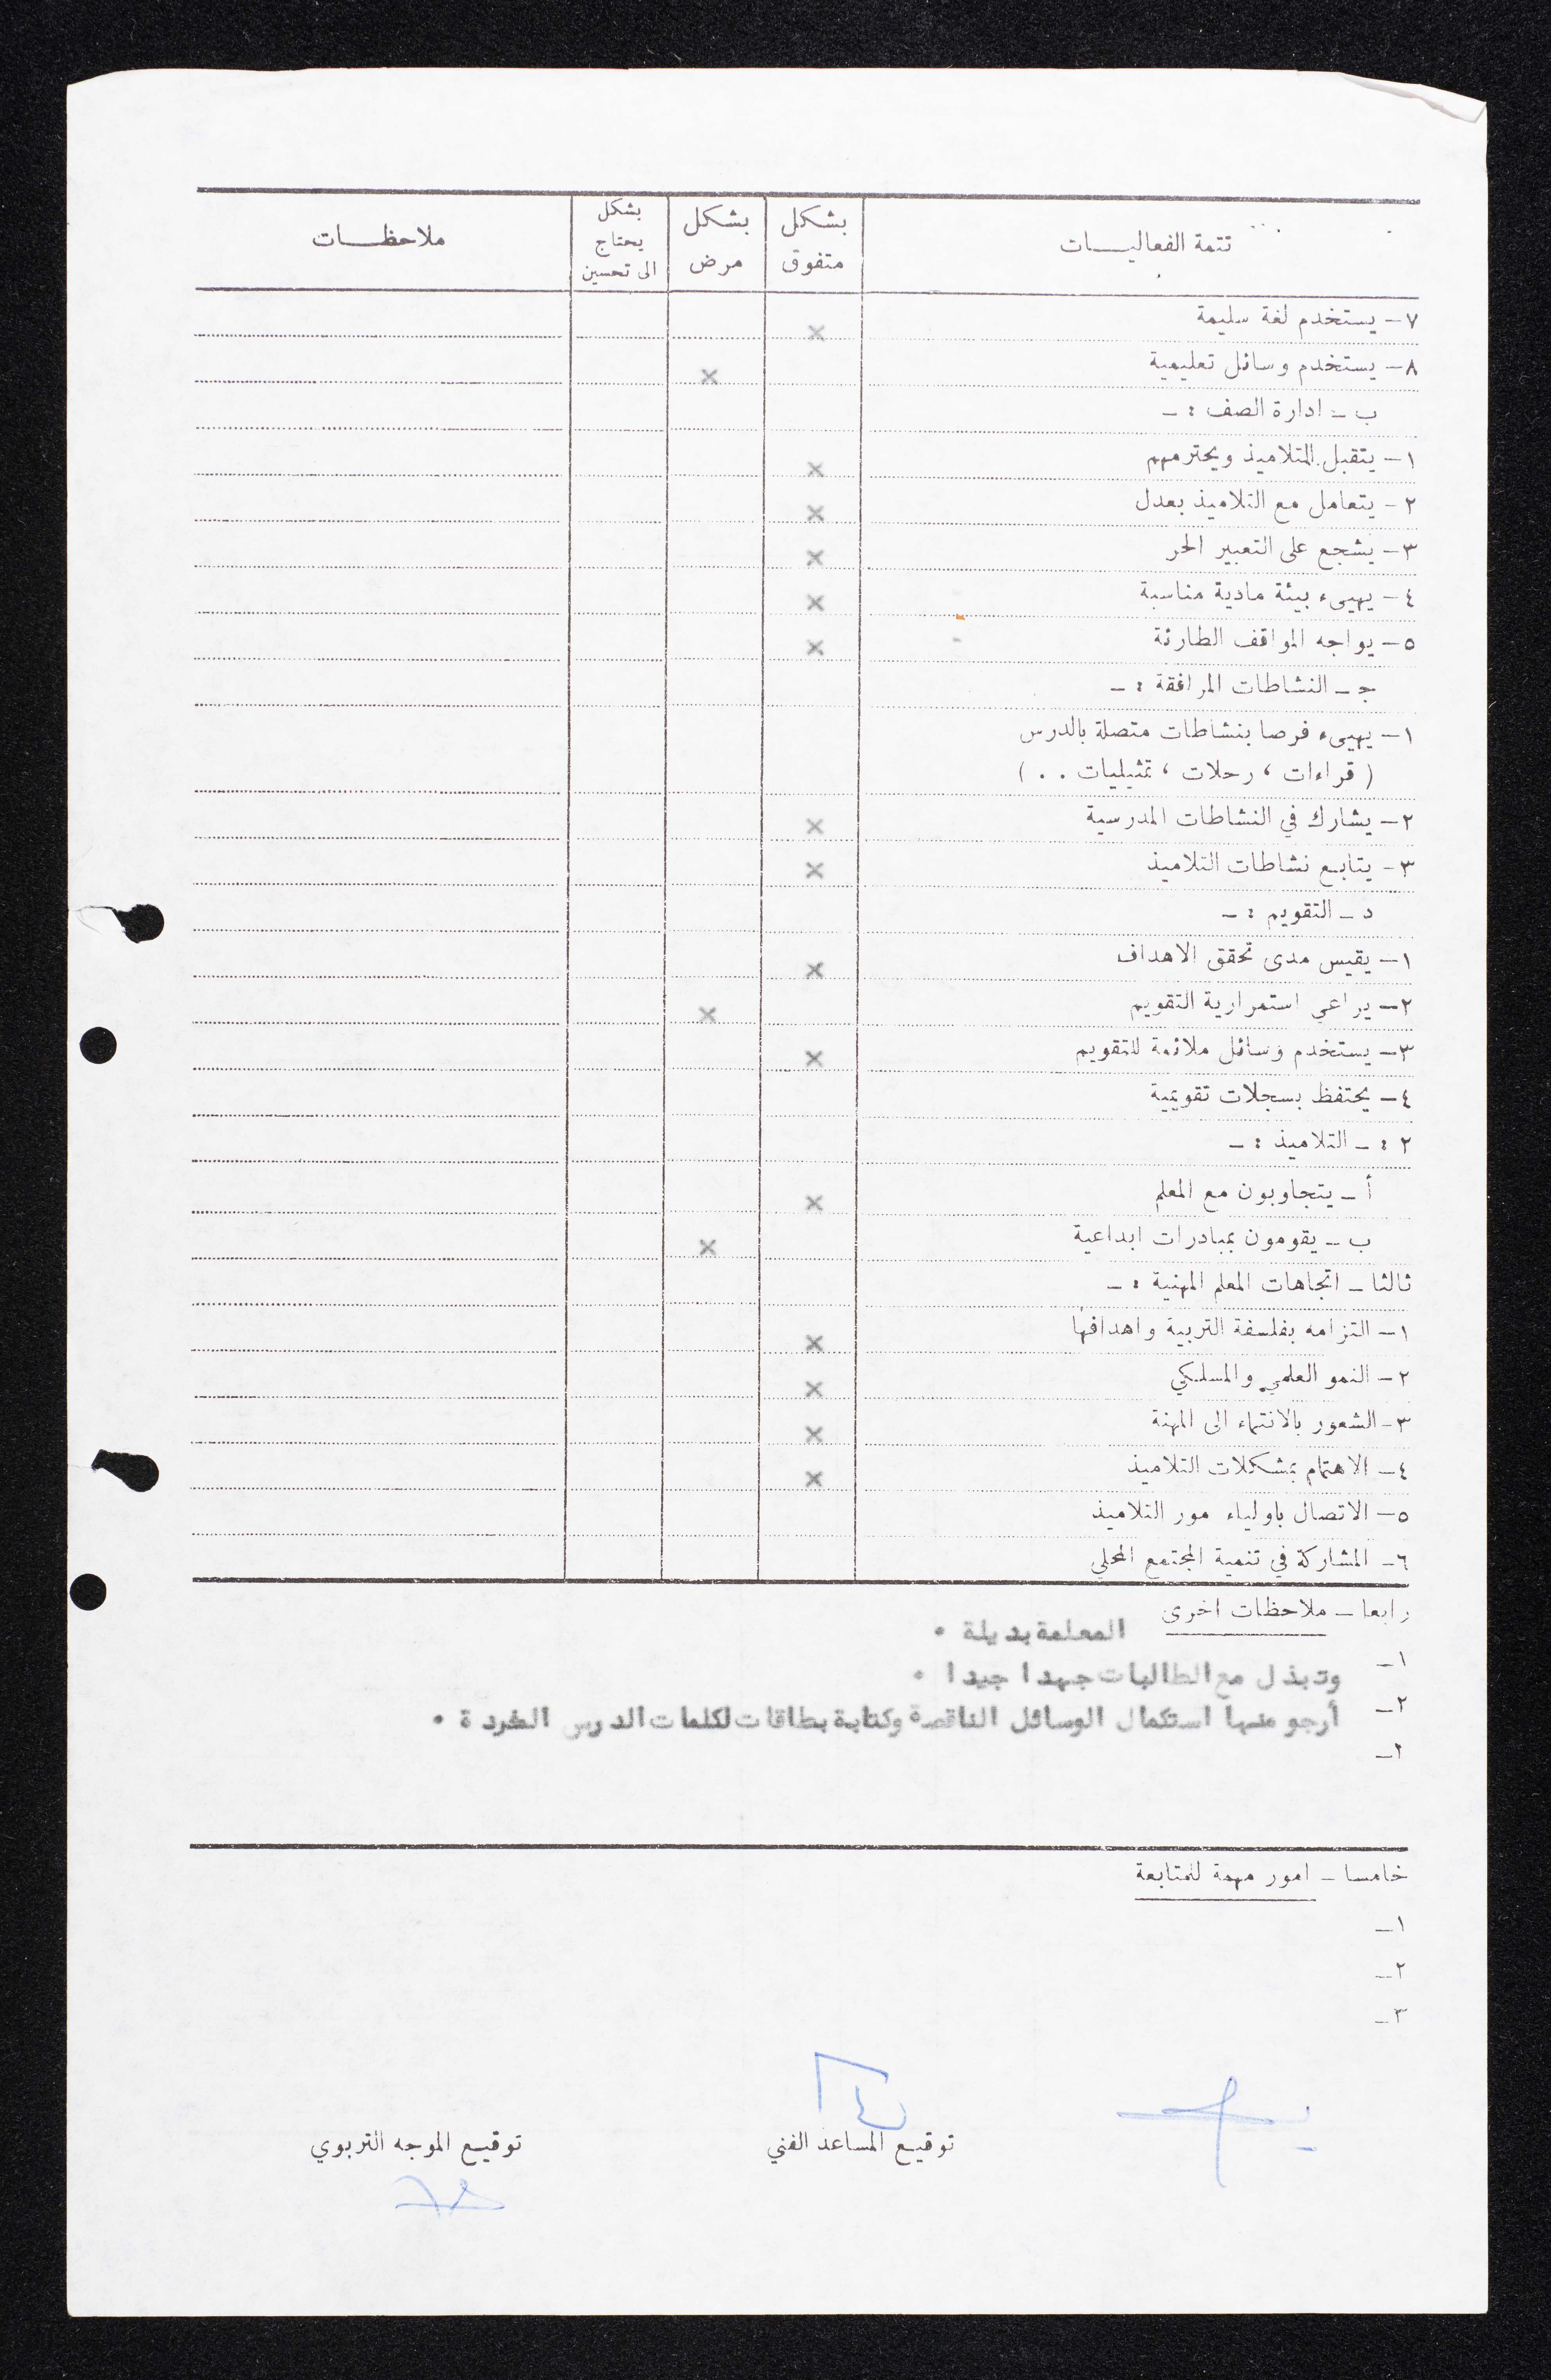 تتمة الفعاليـــات
بشكل متفوق
بشكل مرض
بشكل يحتاج الى تحسين
ملاحظـــات
٧- يستخدم لغة سليمة ×
٨- يستخدم وسائل تعليمية ×
ب - ادارة الصف : -
١- يتقبل التلاميذ ويحترمهم ×
٢- يتعامل مع التلاميذ بعدل ×
٣- يشجع على التعبير الحر ×
٤- يهيىء بيئة مادية مناسبة ×
٥- يواجه المواقف الطارئة ×
ج - النشاطات المرافقة : -
١- يهيىء فرصا بنشاطات متصلة بالدرس
( قراءات ، رحلات ، تمثيليات . . )
٢- يشارك في النشاطات المدرسية ×
٣- يتابع نشاطات التلاميذ ×
د - التقويم : -
١- يقيس مدى تحقق الاهداف ×
٢- يراعي استمرارية التقويم ×
٣- يستخدم وسائل ملائمة للتقويم ×
٤- يحتفظ بسجلات تقويمية
٢ : - التلاميذ : -
أ - يتجاوبون مع المعلم ×
ب - يقومون بمبادرات ابداعية ×
ثالثا - اتجاهات المعلم المهنية : -
١- التزامه بفلسفة التربية واهدافها ×
٢- النمو العلمي والمسلكي ×
٣- الشعور بالانتماء الى المهنة ×
٤- الاهتمام بمشكلات التلاميذ ×
٥- الاتصال باولياء مور التلاميذ
٦- المشاركة في تنمية المجتمع المحلي
رابعا - ملاحظات اخرى
المعلمة بديلة .
١-
وتبذل مع الطالبات جهدا جيدا .
٢-
أرجو منها استكمال الوسائل الناقصة وكتابة بطاقات لكلمات الدرس
٢-
خامسا - امور مهمة للمتابعة
١-
٢-
٣-
توقيع المساعد الفني
توقيع الموجه التربوي